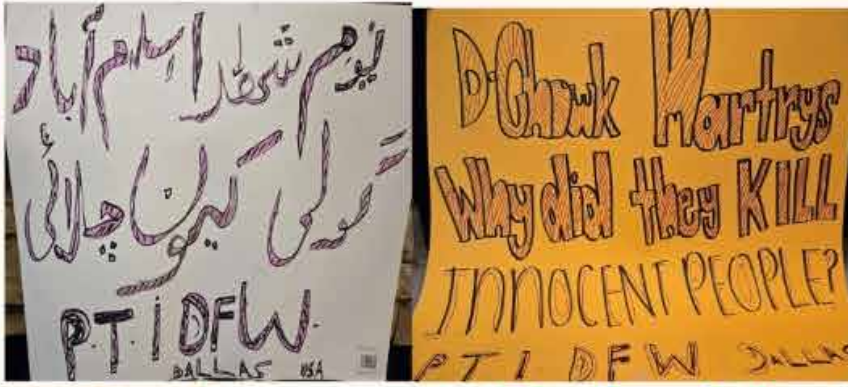 یوم شھدا اسلام آباد
گولی کیوں چلائی
P.T.I DFW.
DALLAS USA
D-Chowk Martrys
Why did they KILL
INNOCENT PEOPLE?
PTI DFW DALLAS